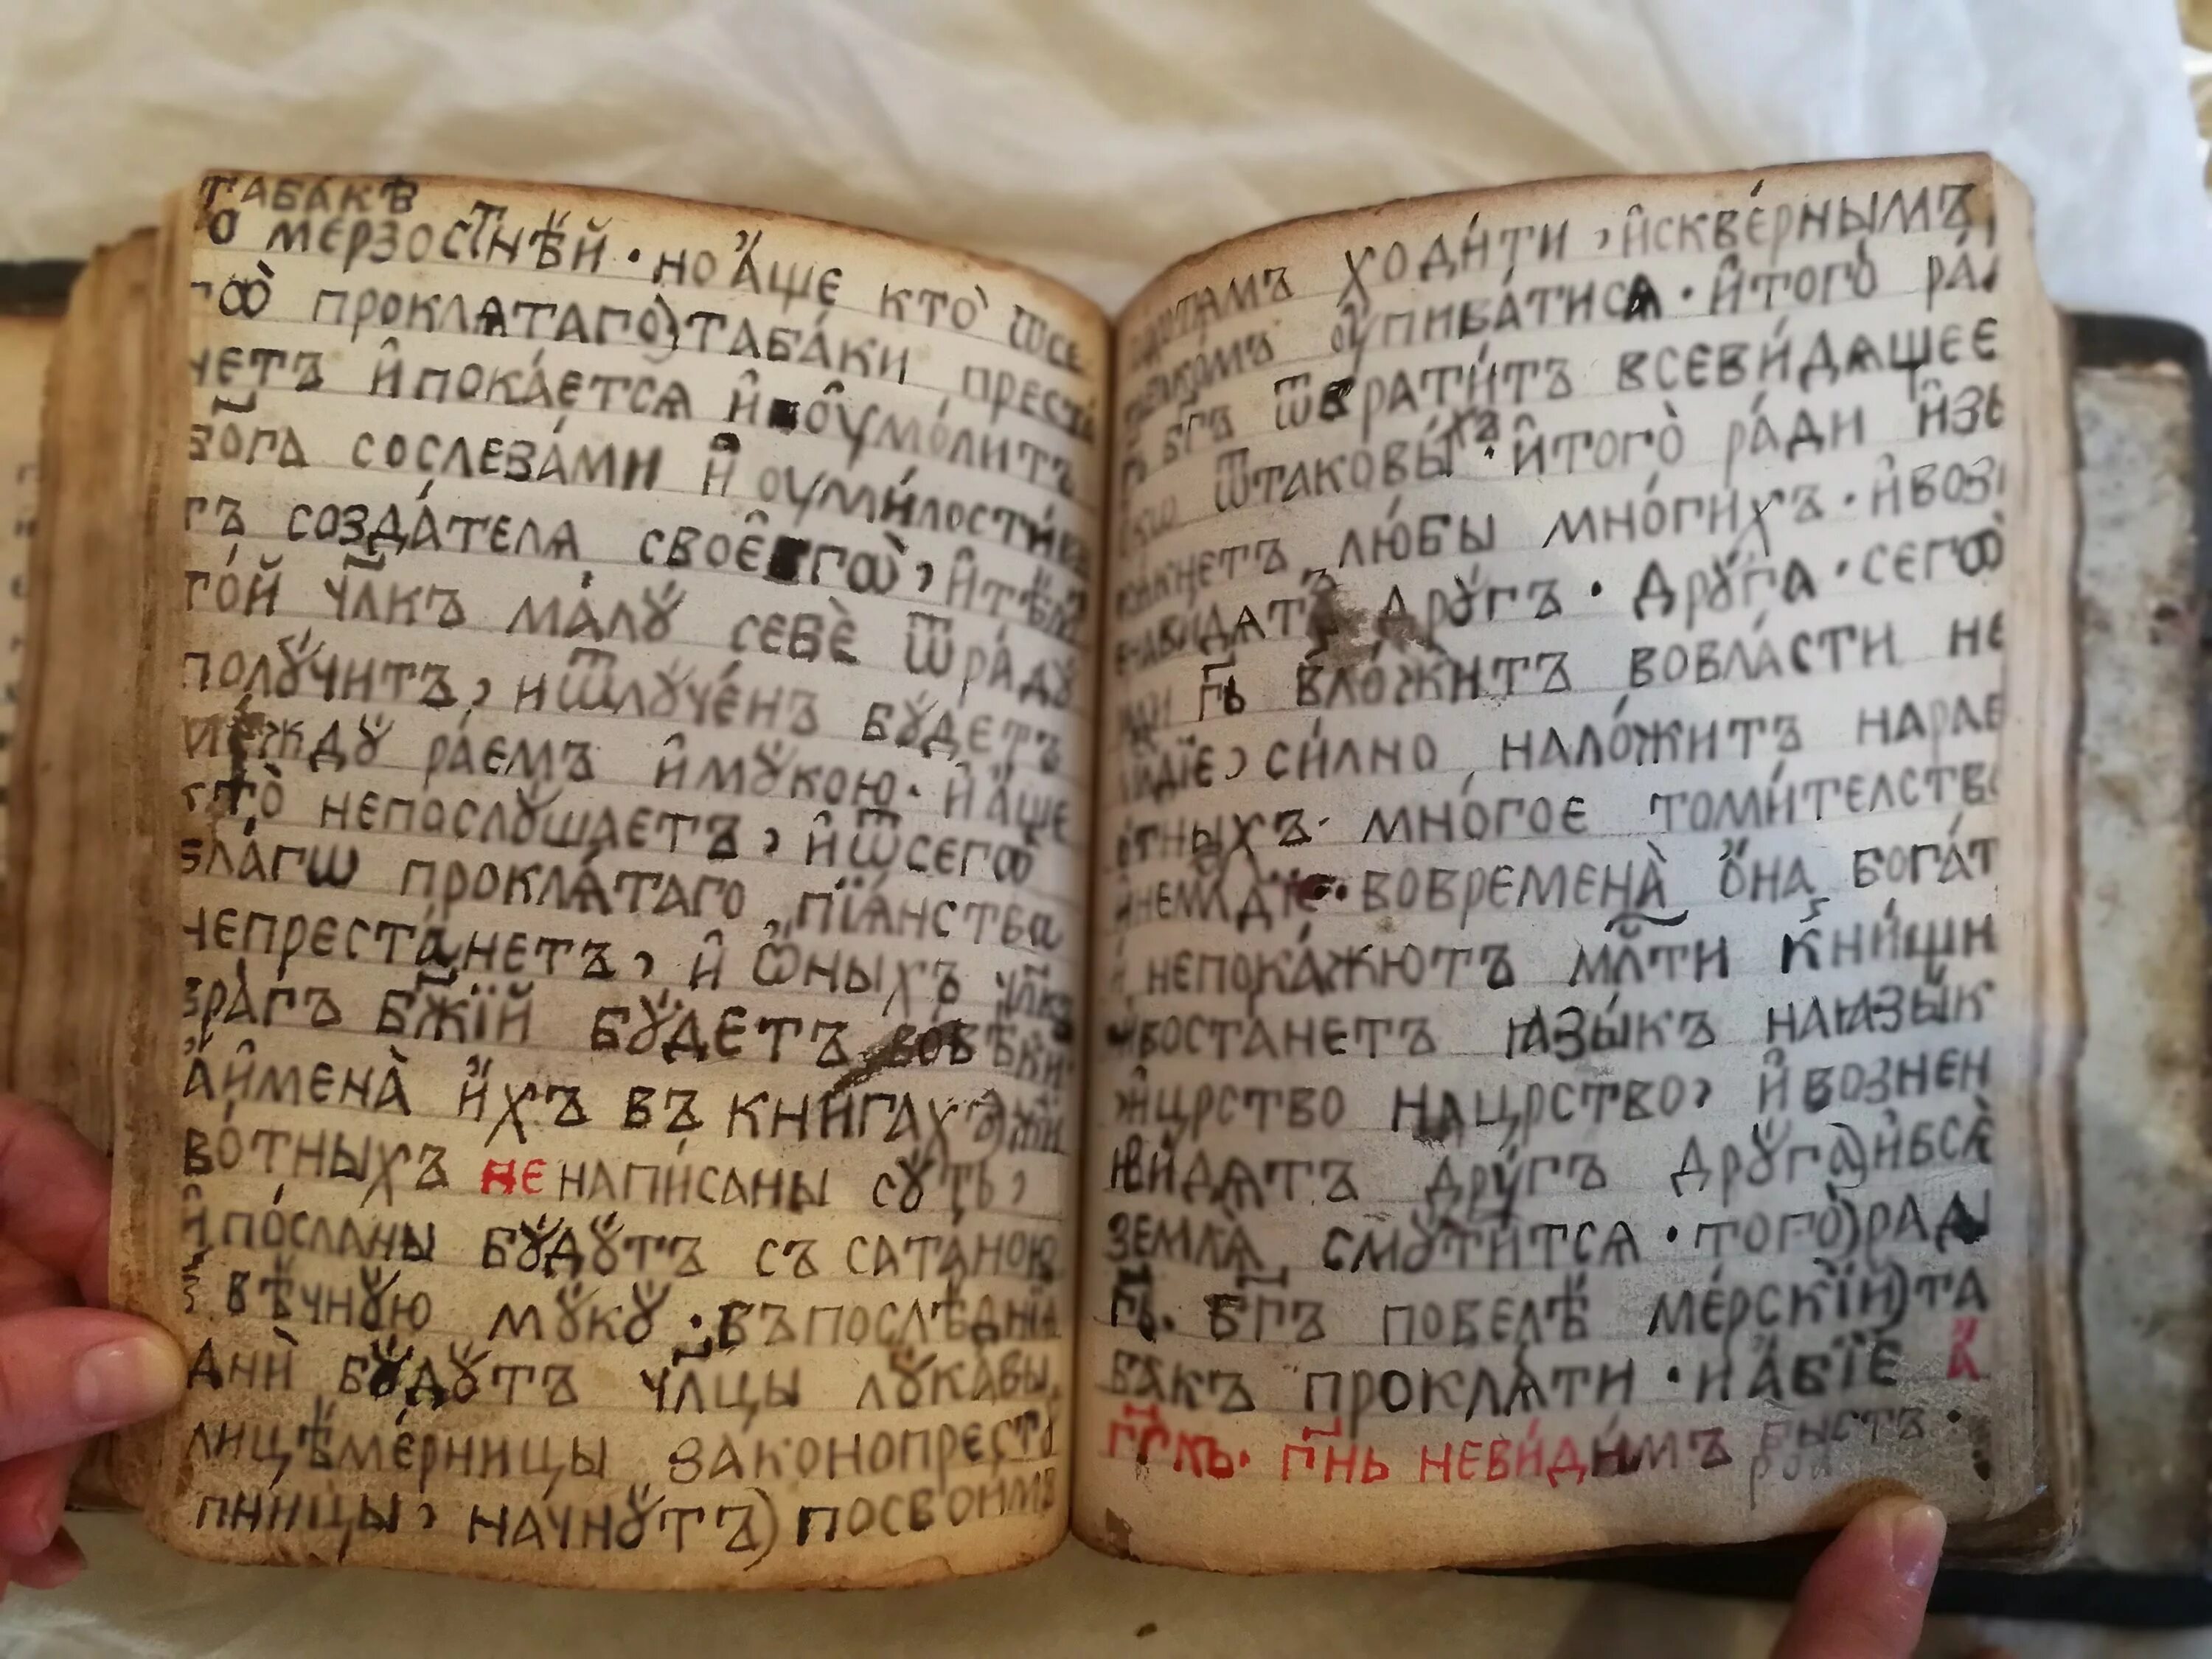 табакѣ
о мерзостнѣй · но аще кто ѿсе
гѡ проклѧтаго) табаки преста
нетъ и покаетсѧ и оумолитъ
бога сослезами и оумилостиви
тъ создателѧ своегѡ, и тѣм
той чл҃къ малꙋ себе ѿрадꙋ
полꙋчитъ, и ѿлꙋченъ бꙋдетъ
между раемъ и мꙋкою · и аще
кто непослꙋшаетъ, и ѿсегѡ
злагѡ проклѧтаго пїѧнства
непрестанетъ, и ѡныхъ чл҃къ
врагъ бж҃їй бꙋдетъ вовѣки
а имена ихъ въ книгах) жи
вотныхъ не написаны сꙋть,
и посланы бꙋдꙋтъ съ сатаною
в вѣчнꙋю мꙋкꙋ · въ послѣднїѧ
дни бꙋдꙋтъ чл҃цы лꙋкавы,
лицѣмерницы законопрестꙋ
пницы, начнꙋтъ) посвоимъ
ходити, исквернымъ
табакомъ оупиватисѧ · итого ра
бг҃ъ ѿвратитъ всевидѧщее
ѿтаковыхъ · итого ради изъ
любы многихъ · и воз
другъ · дрꙋга · сегѡ
гь҃ вложитъ вовласти не
силно наложитъ нарае
отных многое томителство
вовремена ѻна богат
непокажютъ мл҃ти к нищи
востанетъ ꙗзыкъ наꙗзык
ицрство нацрство, и вознен
видѧтъ друг дрꙋга) ивсѧ
землѧ смꙋтитсѧ · того) ради
гь҃. бг҃ъ повелѣ мерскїй) та
бакъ проклѧти · и абїе
невидимъ бысть ·